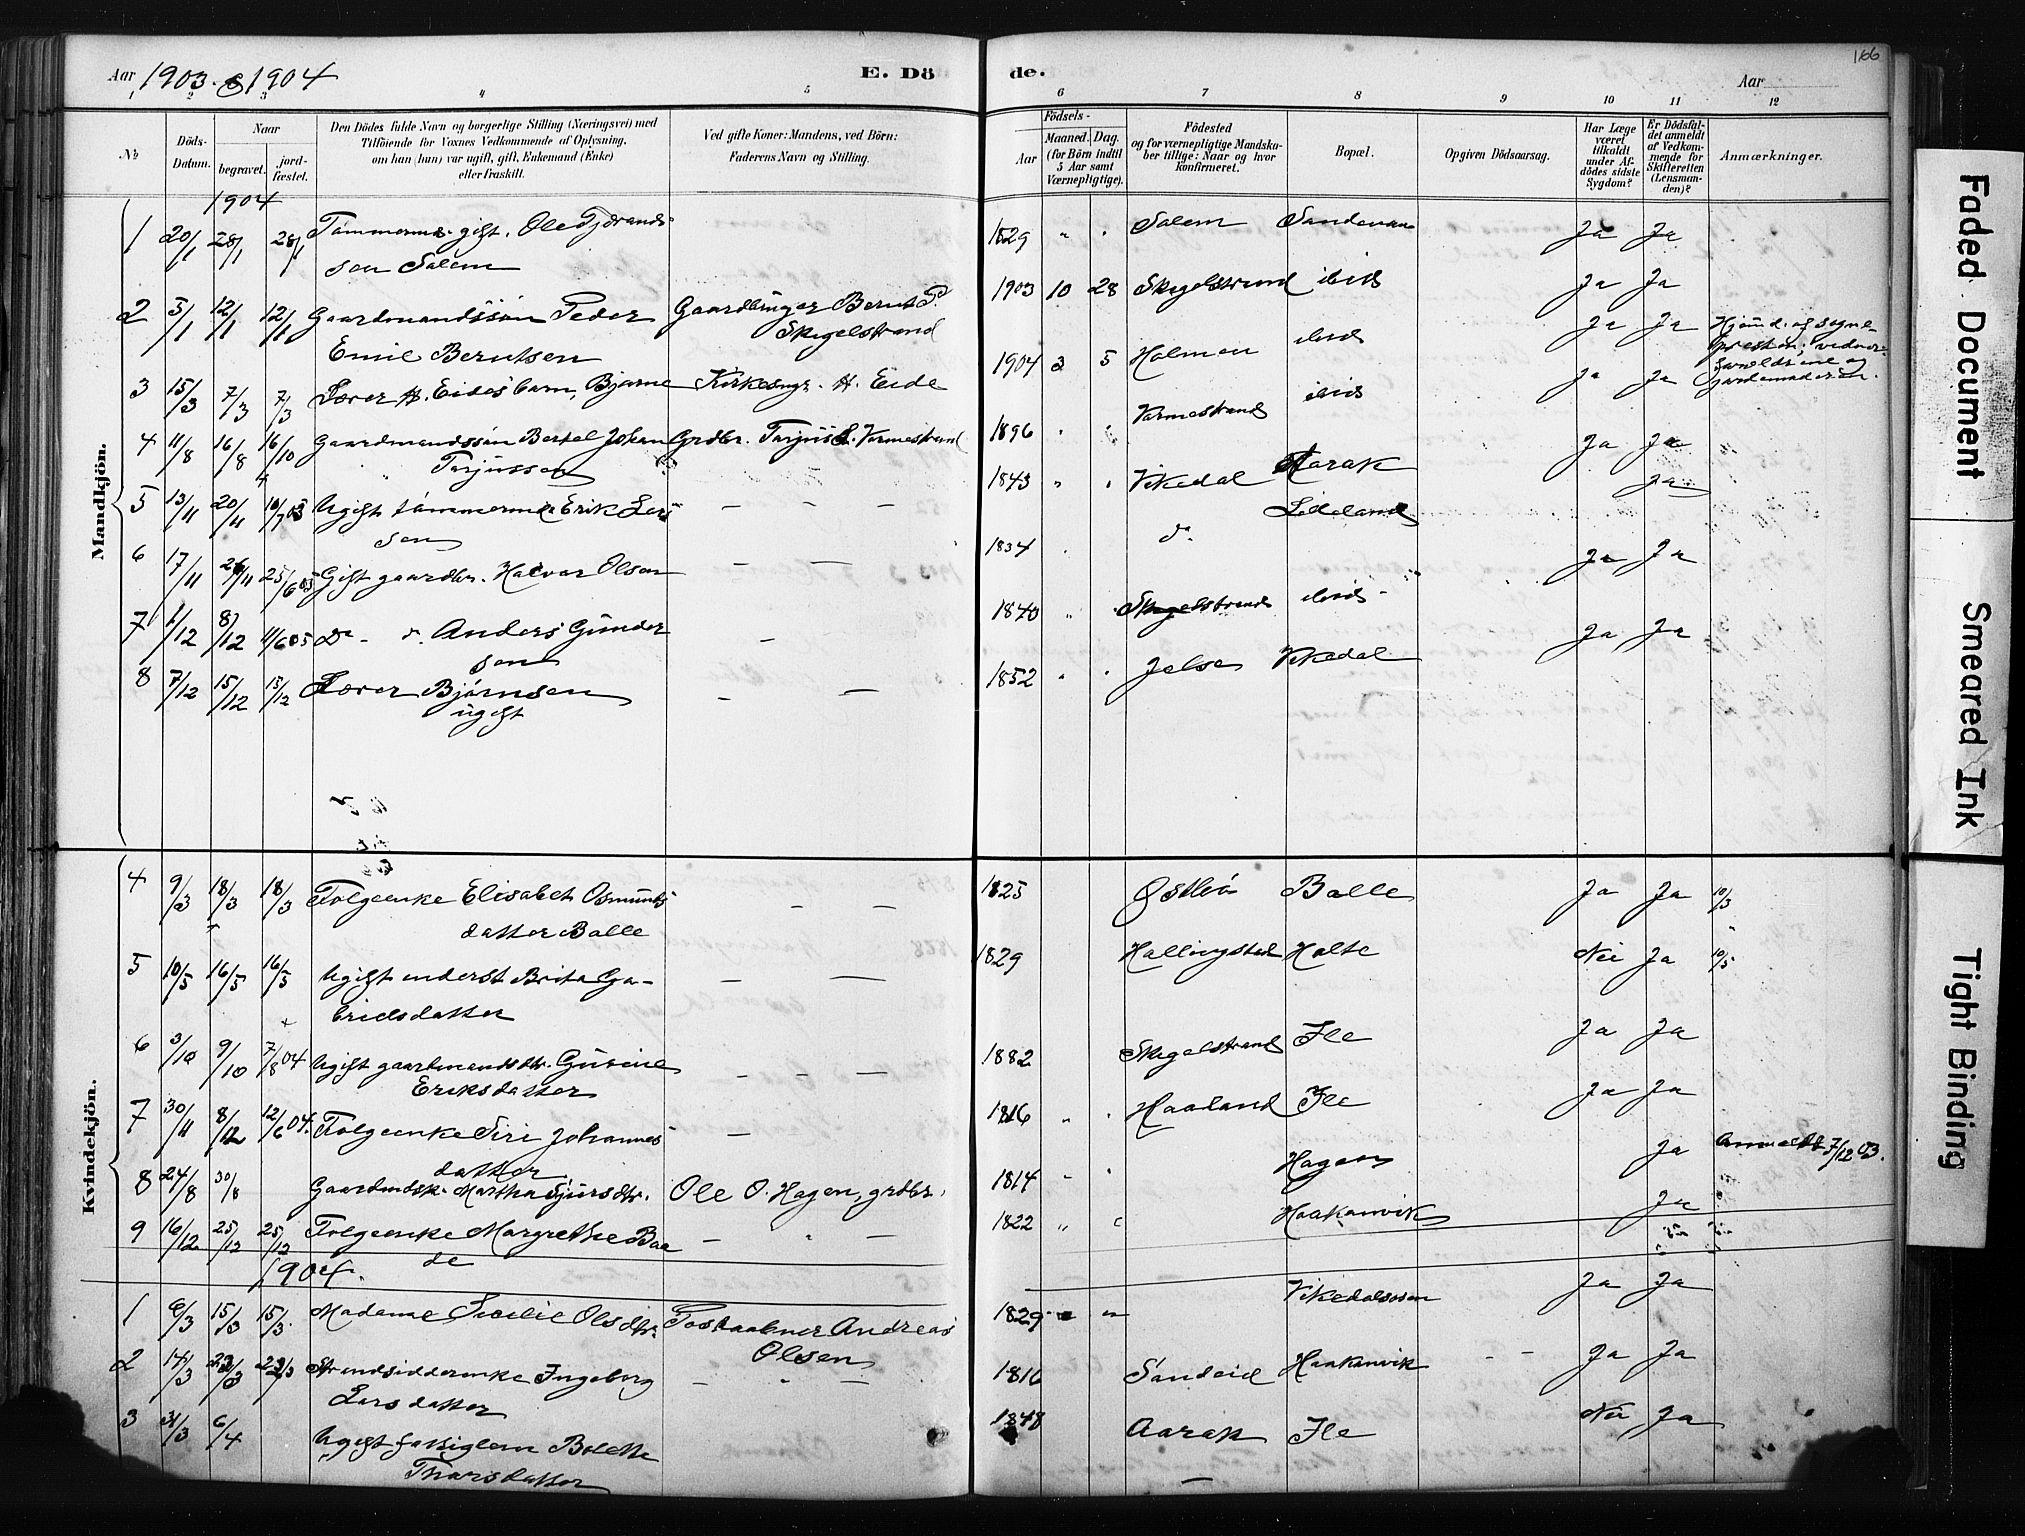 166
Aar 1903. & 1904
E. Dö
de.
Aar
1 2 3 4 5 6 7 8 9 10 11 12
No
Döds-Datum.
Naar
begravet.
jord-fæstet.
Den Dödes fulde Navn og borgerlige Stilling (Næringsvei) med
Tilföiende for Voxnes Vedkommende af Oplysning,
om han (hun) var ugift, gift, Enkemand (Enke)
eller fraskilt.
Ved gifte Koner: Mandens, ved Börn:
Faderens Navn og Stilling.
Födsels-
Aar
Maaned. Dag.
(for Börn indtil
5 Aar samt
Værnepligtige).
Födested
og for værnepligtige Mandska-
ber tillige: Naar og hvor
konfirmeret.
Bopæl.
Opgiven Dödsaarsag.
Har Læge
været
tilkaldt
under Af-
dödes sidste
Sygdom?
Er Dödsfal-
det anmeldt
af Vedkom-
mende for
Skifteretten
(Lensman-
den)?
Anmærkninger.
Mandkjön.
1904
1 20/1 28/1 28/1 Tømmermd. gift. Ole Tjdrands-
sen Salem
1829 " " Salem Ja Ja
2 5/1 12/1 12/1 Gaardmandssøn Peder Gaardbruger Bernt P.
Emil Berntsen Skigelstrand
1903 10 28 Skigelstrand ibid Ja Ja
3 15/3 7/3 7/3 Lærer H. Eides barn, Bjarne Kirkesngr. H. Eide
1904 2 5 Holmen ibid Ja Ja
Hjemd. af Sogne-
presten;
4 11/8 16/8 16/10 Gaardmandssøn Bertel Johan Grdbr. Tarjus L. Varmestrand
Tarjussen
1896 " " Varmestrand ibid Ja Ja
5 13/11 20/11 16/7 03 Ugift tømmermd. Erik Lars-
sen
1843 " " Vikedal Aarak Ja Ja
6 17/11 26/11 25/6 05 Gift gaardbr. Halvor Olsen
1834 " do. Lideland Ja
7 1/12 8/12 11/6 05 Do - do. Anders Gunder
sen
1840 " " Skigelstrand ibid - Ja Ja
8 7/12 15/12 15/12 Lærer Bjørnsen
ugift
1852 " " Jelse Vikedal Ja Ja
Kvindekjön.
4 9/3 18/3 18/3 Folgeenke Elisabet Osmunds
datter Balle
1825 Østbø Balle Ja Ja 10/3
5 10/5 16/5 16/5 Ugift inderst Brita Ga-
brielsdatter
1829 Hallingstad Holte Nei Ja 10/5
6 3/10 9/10 7/8 04 Ugift gaardmandsdtr. Gurine
Eriksdatter
1882 Skigelstrand Ile Ja Ja
7 30/11 8/12 12/6 04. Folgeenke Siri Johannes
datter
1816 " " Haaland Ile Ja Ja
8 24/8 30/8 Gaardmdsk. Martha Sjursdtr. Ole O. Hagen, grdbr.
1814 " " Hagen Ja Anmeldt 7/12 03.
9 16/12 25/12 25/12 Folgeenke Margrethe Baa
de
1822 " " Haakanvik Ja
1904.
1 6/3 15/3 15/3 Madame Sicelie Olsdtr. Postaabner Andreas
Olsen
1829 " " Vikedalsosen Ja Ja
2 14/3 23/3 23/3 Strandsidderenke Ingeborg
Larsdatter
1816 Sandeid Haakanvik Ja Ja
3 31/3 6/4 Ugift fattiglem Bolette
Thorsdatter
1848 Aarak Ile Nei Ja
Faded Document
Smeared Ink
Tight Binding